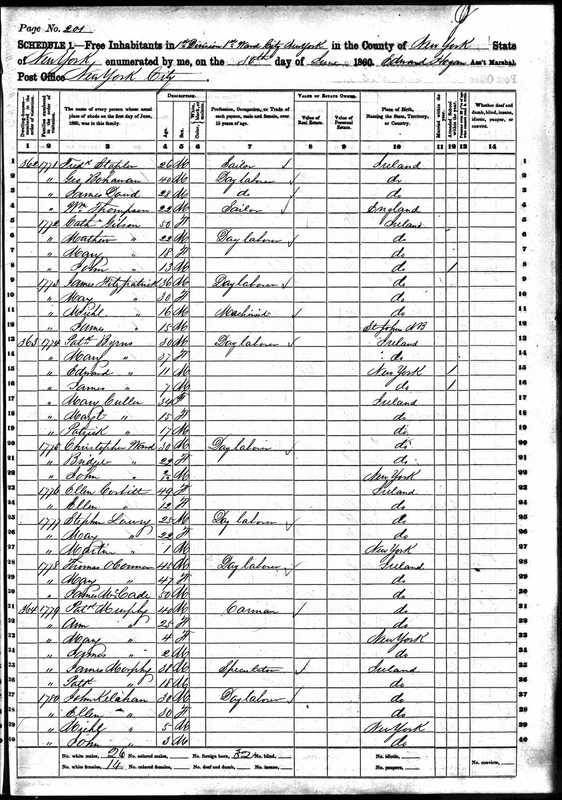 Page No. 201
SCHEDULE 1.—Free Inhabitants in 1st Division 1st Ward City New York in the County of New York State
of New York enumerated by me, on the 18th day of June 1860. Edward Hogan Ass't Marshal.
Post Office New York City
DESCRIPTION. VALUE OF ESTATE OWNED.
The name of every person whose usual place of abode on the first day of June, 1860, was in this family. Age. Sex. Profession, Occupation, or Trade of each person, male and female, over 15 years of age. Value of Real Estate. Value of Personal Estate. Place of Birth, Naming the State, Territory, or Country. Married within the year. Attended School within the year. Whether deaf and dumb, blind, insane, idiotic, pauper, or convict.
1 2 3 4 5 6 7 8 9 10 11 12 13 14
1 362 1771 Fredk Stapler 26 M Sailor Ireland
2 " Geo Bohanan 40 M Day labour do
3 " James David 28 M do do
4 " Wm Thompson 22 M Sailor England
5 " 1772 Cath Gilson 50 F Ireland
6 " Mathew " 22 M Day labour do
7 " Mary " 18 F do
8 " John " 13 M do 1
9 " 1773 James Fitzpatrick 36 M Day labour do
10 " May " 30 F do
11 " Michl " 16 M Machinist do
12 " James " 15 M St John NB
13 363 1774 Patk Byrns 30 M Day labour Ireland
14 " Mary " 37 F do
15 " Edward " 11 M New York 1
16 " James " 7 M do 1
17 " Mary Cullen 34 F Ireland
18 " Margt " 15 F do
19 " Patrick " 17 M do
20 " 1775 Christopher Ward 30 M Day labour do
21 " Bridget " 22 F do
22 " John " M New York
23 " 1776 Ellen Corbitt 49 F Ireland
24 " Ellen " 12 F do
25 " 1777 Stephen Lowry 25 M Day labour do
26 " May " 22 F do
27 " Martin " 1 M New York
28 " 1778 Thomas OConnor 45 M Day labour Ireland
29 " May " 47 F do
30 " James McCade 50 M do
31 364 1779 Patk Murphy 40 M Carman do
32 " Ann " 25 F do
33 " May " 4 F New York
34 " James " 2 M do
35 " James Murphy 38 M Speculator Ireland
36 " Patk " 18 M do
37 " 1780 John Kelahan 30 M Day labour do
38 " Ellen " 30 F do
39 " Michl " 5 M New York
40 " John " 3 M do
No. white males, 26 No. colored males, No. foreign born, 32 No. blind, No. idiotic, No. convicts,
No. white females, 14 No. colored females, No. deaf and dumb, No. insane, No. paupers,